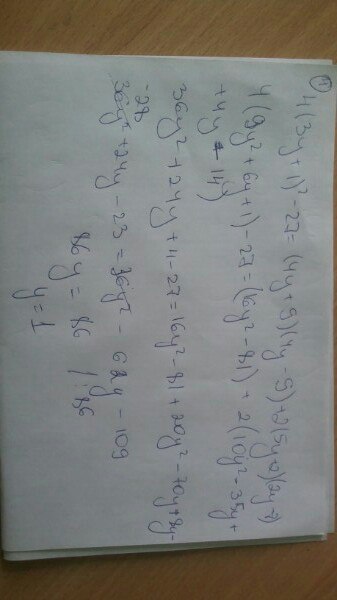 1) 4(3y+1)²-27=(4y+9)(4y-9)+2(5y+2)(2y-7)
4(9y²+6y+1)-27=(16y²-81)+2(10y²-35y+
+4y-14)
36y²+24y+4-27=16y²-81+20y²-70y+8y-
-28
36y²+24y-23=36y²-62y-109
86y=86 /:86
y=1